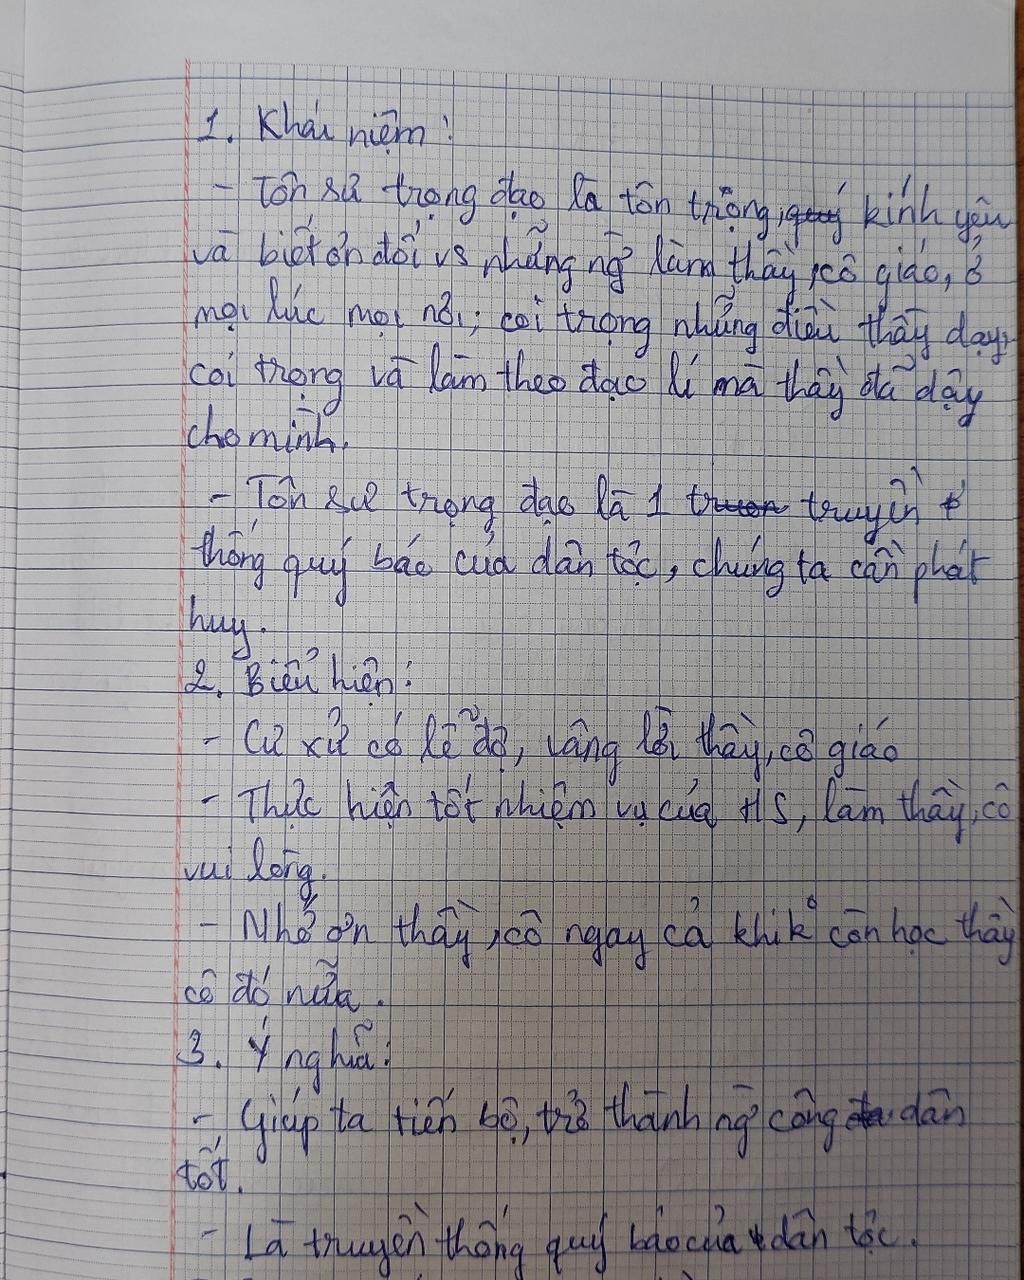 1. Khái niệm:
- Tôn sư trọng đạo là tôn trọng, quý kính yêu
và biết ơn đối vs những ng̀ làm thầy, cô giáo, ở
mọi lúc mọi nơi; coi trọng những điều thầy dạy,
coi trọng và làm theo đạo lí mà thầy đã dậy
cho mình.
- Tôn sư trọng đạo là 1 truyền
thống quý báo của dân tộc, chúng ta cần phát
huy.
2. Biểu hiện:
- Cư xử có lễ độ, vâng lời thầy, cô giáo
- Thực hiện tốt nhiệm vụ của HS, làm thầy, cô
vui lòng.
- Nhớ ơn thầy, cô ngay cả khi k° còn học thầy
cô đó nữa.
3. Ý nghĩa:
- Giúp ta tiến bộ, trở thành ng̀ công dân
tốt.
- Là truyền thống quý báo của dân tộc.